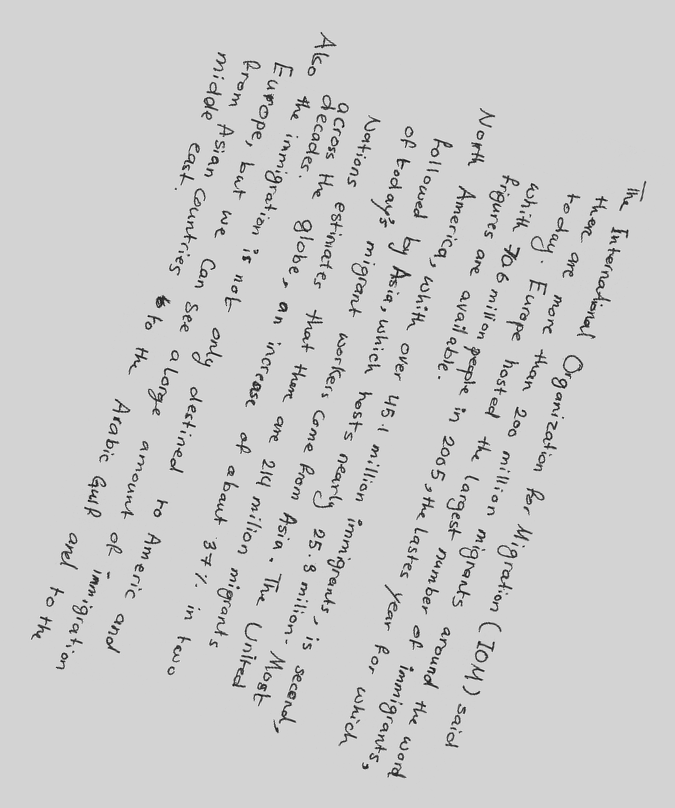 The International Organization for Migration (IOM) said
ther are more than 200 million migrants around the word
today. Europe hosted the largest number of immigrants,
whith 70.6 million people in 2005, the lastes year for which
figures are available.
North America, whith over 45.1 million immigrants, is second,
followed by Asia, which hosts nearly 25.3 milion. Most
of today's migrant workers come from Asia. The United
Nations estimiates that ther are 214 milion migrants
across the globe, an increase of abaut 37% in two
decades.
Also the immigration is not only destined to Americ and
Europe, but we can see a large amount of immigration
from Asian countries to the Arabic Gulf and to the
middle east.